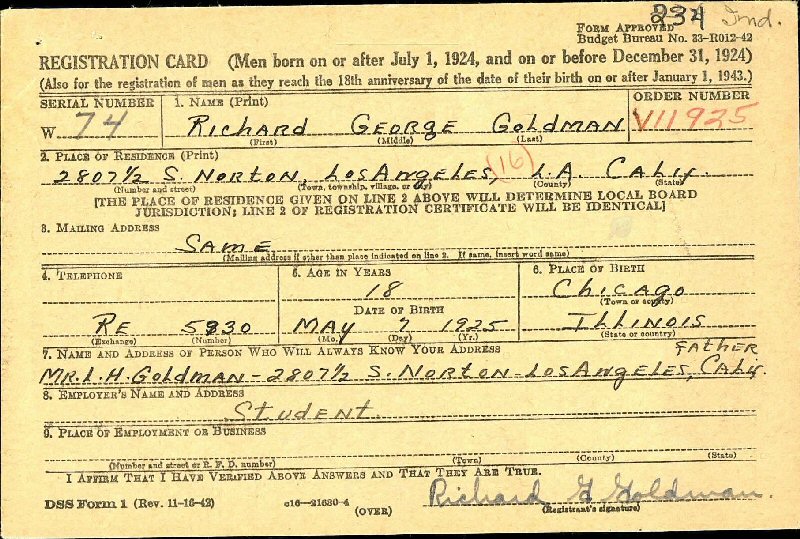 234 Ind.
FORM APPROVED
Budget Bureau No. 33-R012-42
REGISTRATION CARD (Men born on or after July 1, 1924, and on or before December 31, 1924)
(Also for the registration of men as they reach the 18th anniversary of the date of their birth on or after January 1, 1943.)
SERIAL NUMBER 1. NAME (Print) ORDER NUMBER
W 74 RICHARD GEORGE GOLDMAN V11925
(First) (Middle) (Last)
2. PLACE OF RESIDENCE (Print) (16)
2807½ S. NORTON, LOS ANGELES, L.A. CALIF.
(Number and street) (Town, township, village, or city) (County) (State)
[THE PLACE OF RESIDENCE GIVEN ON LINE 2 ABOVE WILL DETERMINE LOCAL BOARD
JURISDICTION; LINE 2 OF REGISTRATION CERTIFICATE WILL BE IDENTICAL]
3. MAILING ADDRESS
SAME
(Mailing address if other than place indicated on line 2. If same, insert word same)
4. TELEPHONE 5. AGE IN YEARS 6. PLACE OF BIRTH
18 CHICAGO
(Town or county)
DATE OF BIRTH
RE 5830 MAY 7 1925 ILLINOIS
(Exchange) (Number) (Mo.) (Day) (Yr.) (State or country)
7. NAME AND ADDRESS OF PERSON WHO WILL ALWAYS KNOW YOUR ADDRESS FATHER
MR. L. H. GOLDMAN - 2807½ S. NORTON - LOS ANGELES, CALIF.
8. EMPLOYER'S NAME AND ADDRESS
STUDENT
9. PLACE OF EMPLOYMENT OR BUSINESS
(Number and street or R. F. D. number) (Town) (County) (State)
I AFFIRM THAT I HAVE VERIFIED ABOVE ANSWERS AND THAT THEY ARE TRUE.
Richard G Goldman.
DSS Form 1 (Rev. 11-16-42) c16—21630-4 (Registrant's signature)
(OVER)